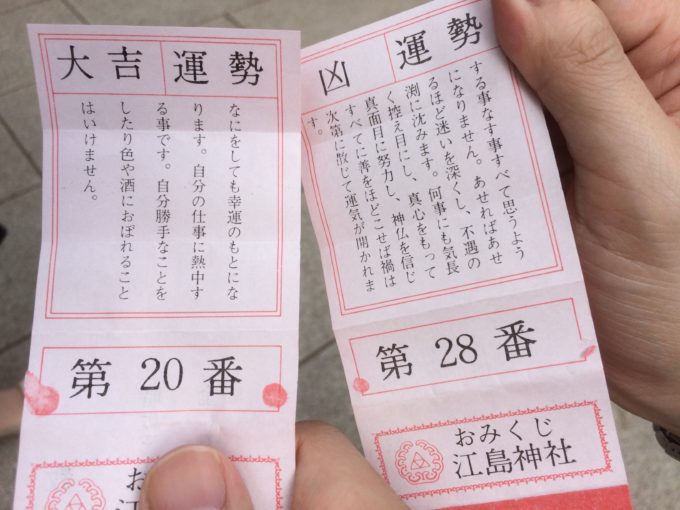 大吉 運勢
なにをしても幸運のもとにな
ります。自分の仕事に熱中す
る事です。自分勝手なことを
したり色や酒におぼれること
はいけません。
第 20 番
おみ
江
凶 運勢
する事なす事すべて思うよう
になりません。あせればあせ
るほど迷いを深くし、不遇の
渕に沈みます。何事にも気長
く控え目にし、真心をもって
真面目に努力し、神仏を信じ
すべてに善をほどこせば禍は
次第に散じて運気が開かれま
す。
第 28 番
おみくじ
江島神社